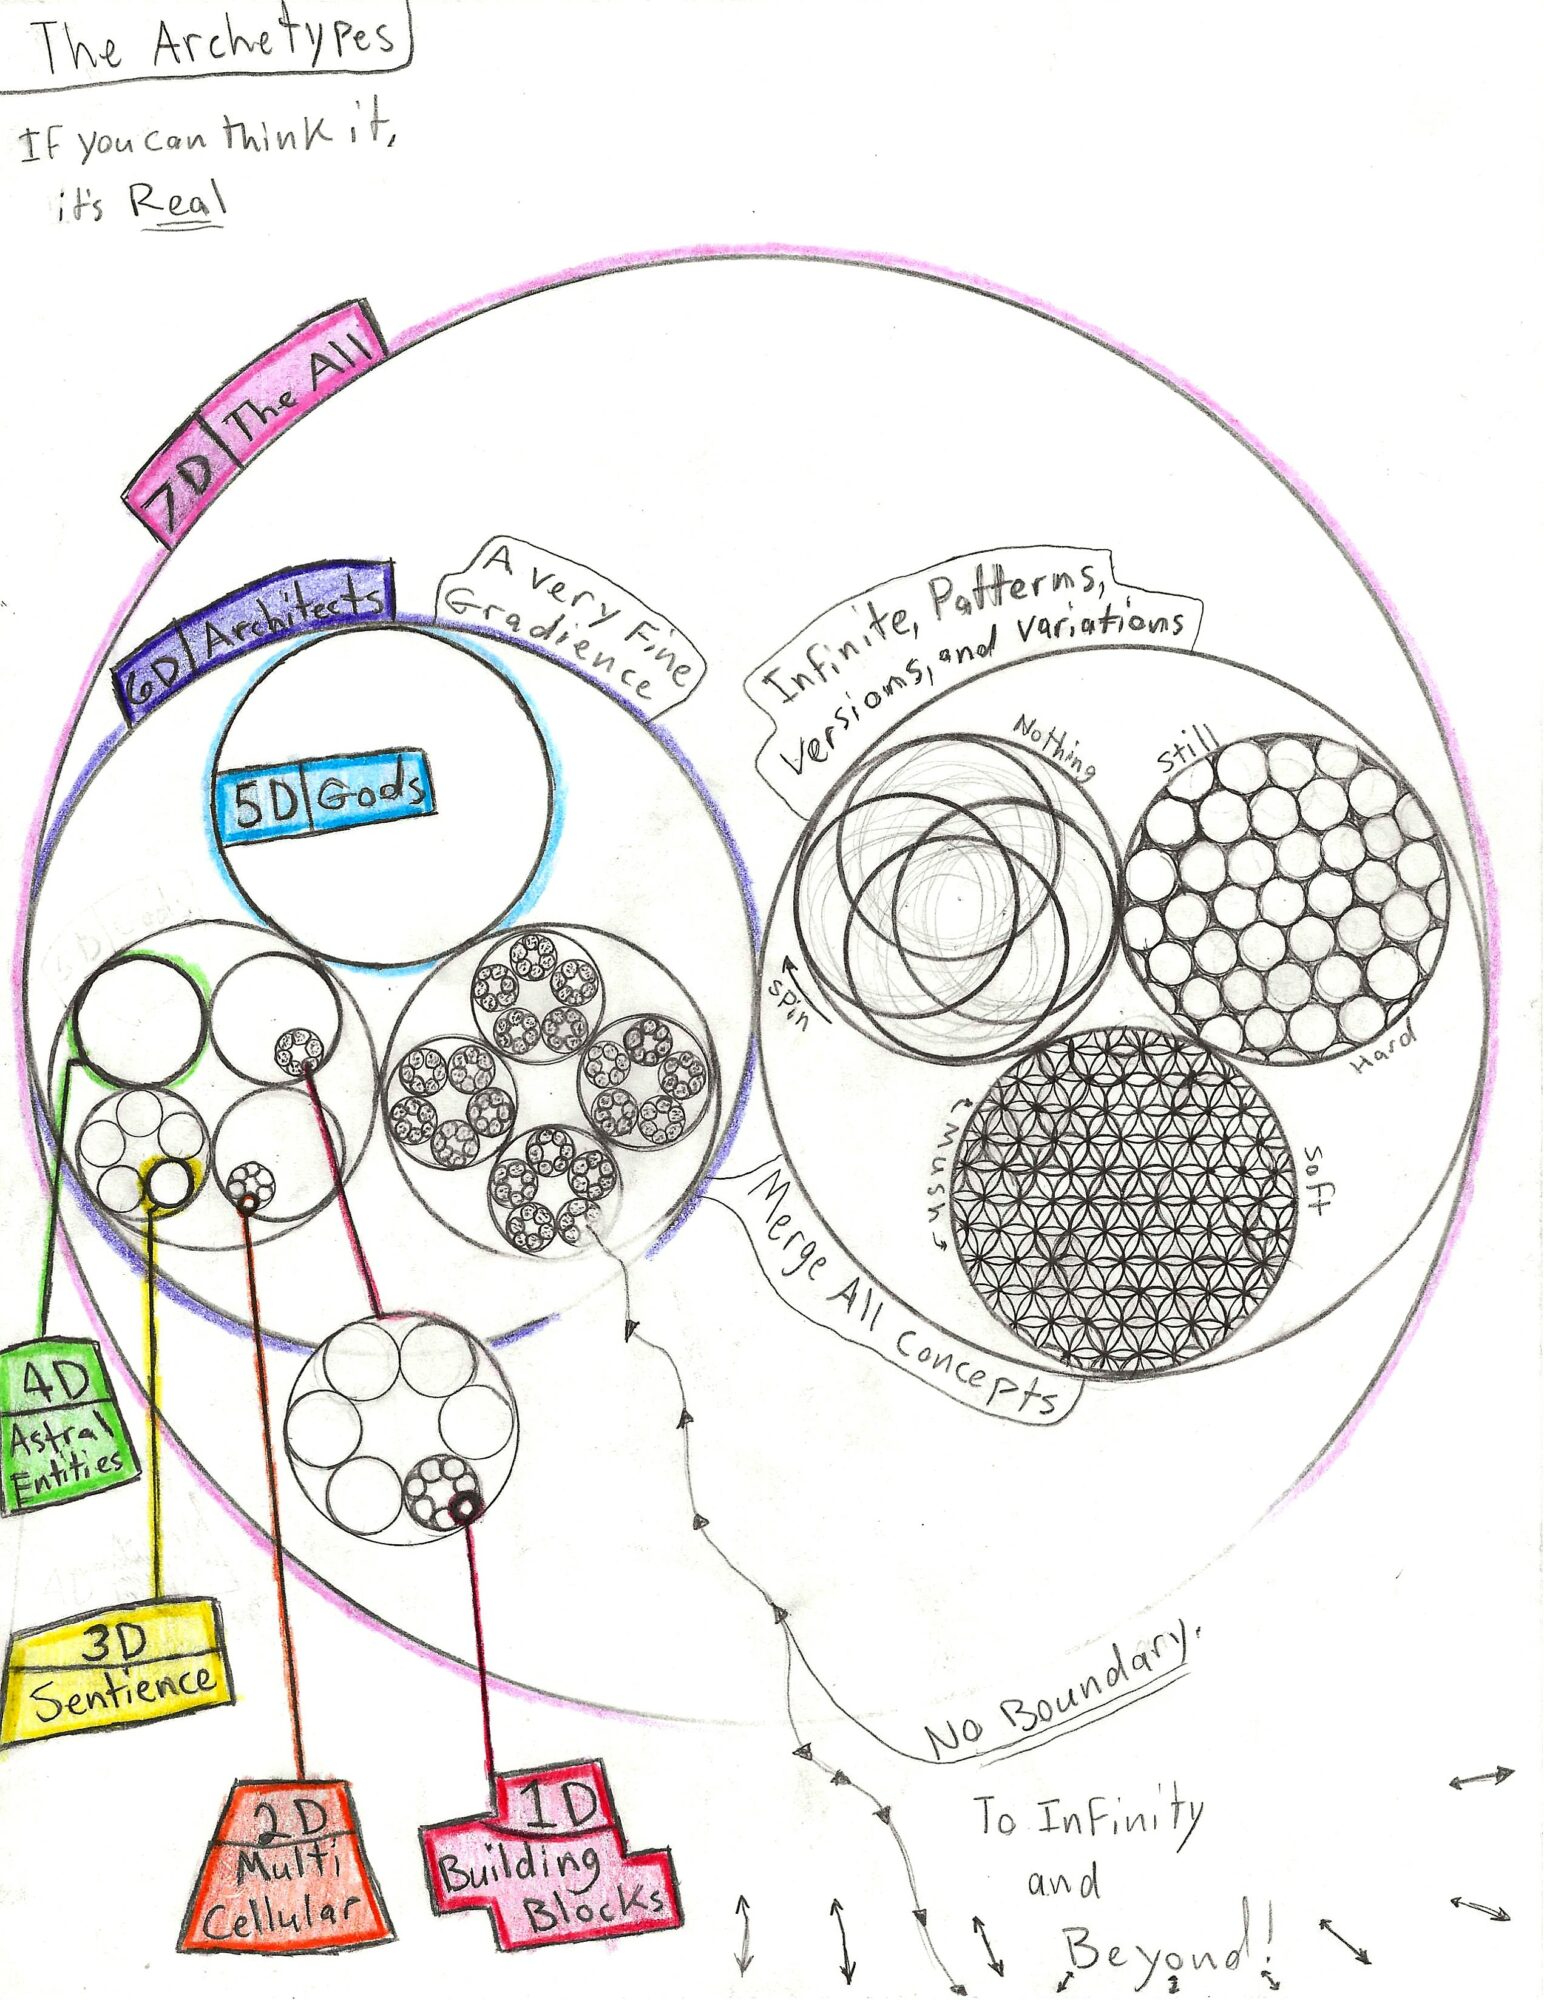 The Archetypes
If you can think it,
it's Real
7D The All
6D Architects
A very Fine
Gradience
Infinite, Patterms,
versioms, and variations
5D Gods
Nothing
Still
spin
Hard
Mush
Soft
Merge All Concepts
4D
Astral
Entities
3D
Sentience
2D
Multi
Cellular
1D
Building
Blocks
No Boundary.
To Infinity
and
Beyond!